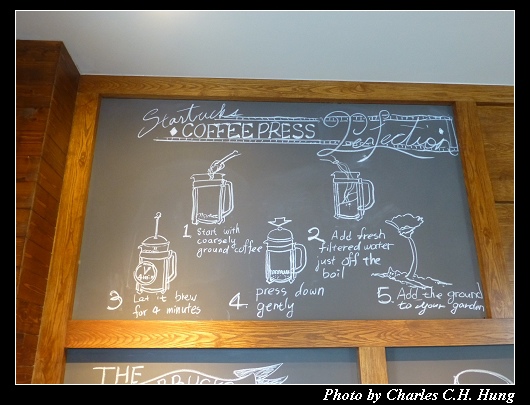 Starbucks
COFFEE PRESS Perfection
1 Start with
coarsely
ground coffee
2 Add fresh
filtered water
just off the
boil
3 Let it brew
for 4 minutes
4. press down
gently
5. Add the ground
to your garden
THE
Photo by Charles C.H. Hung